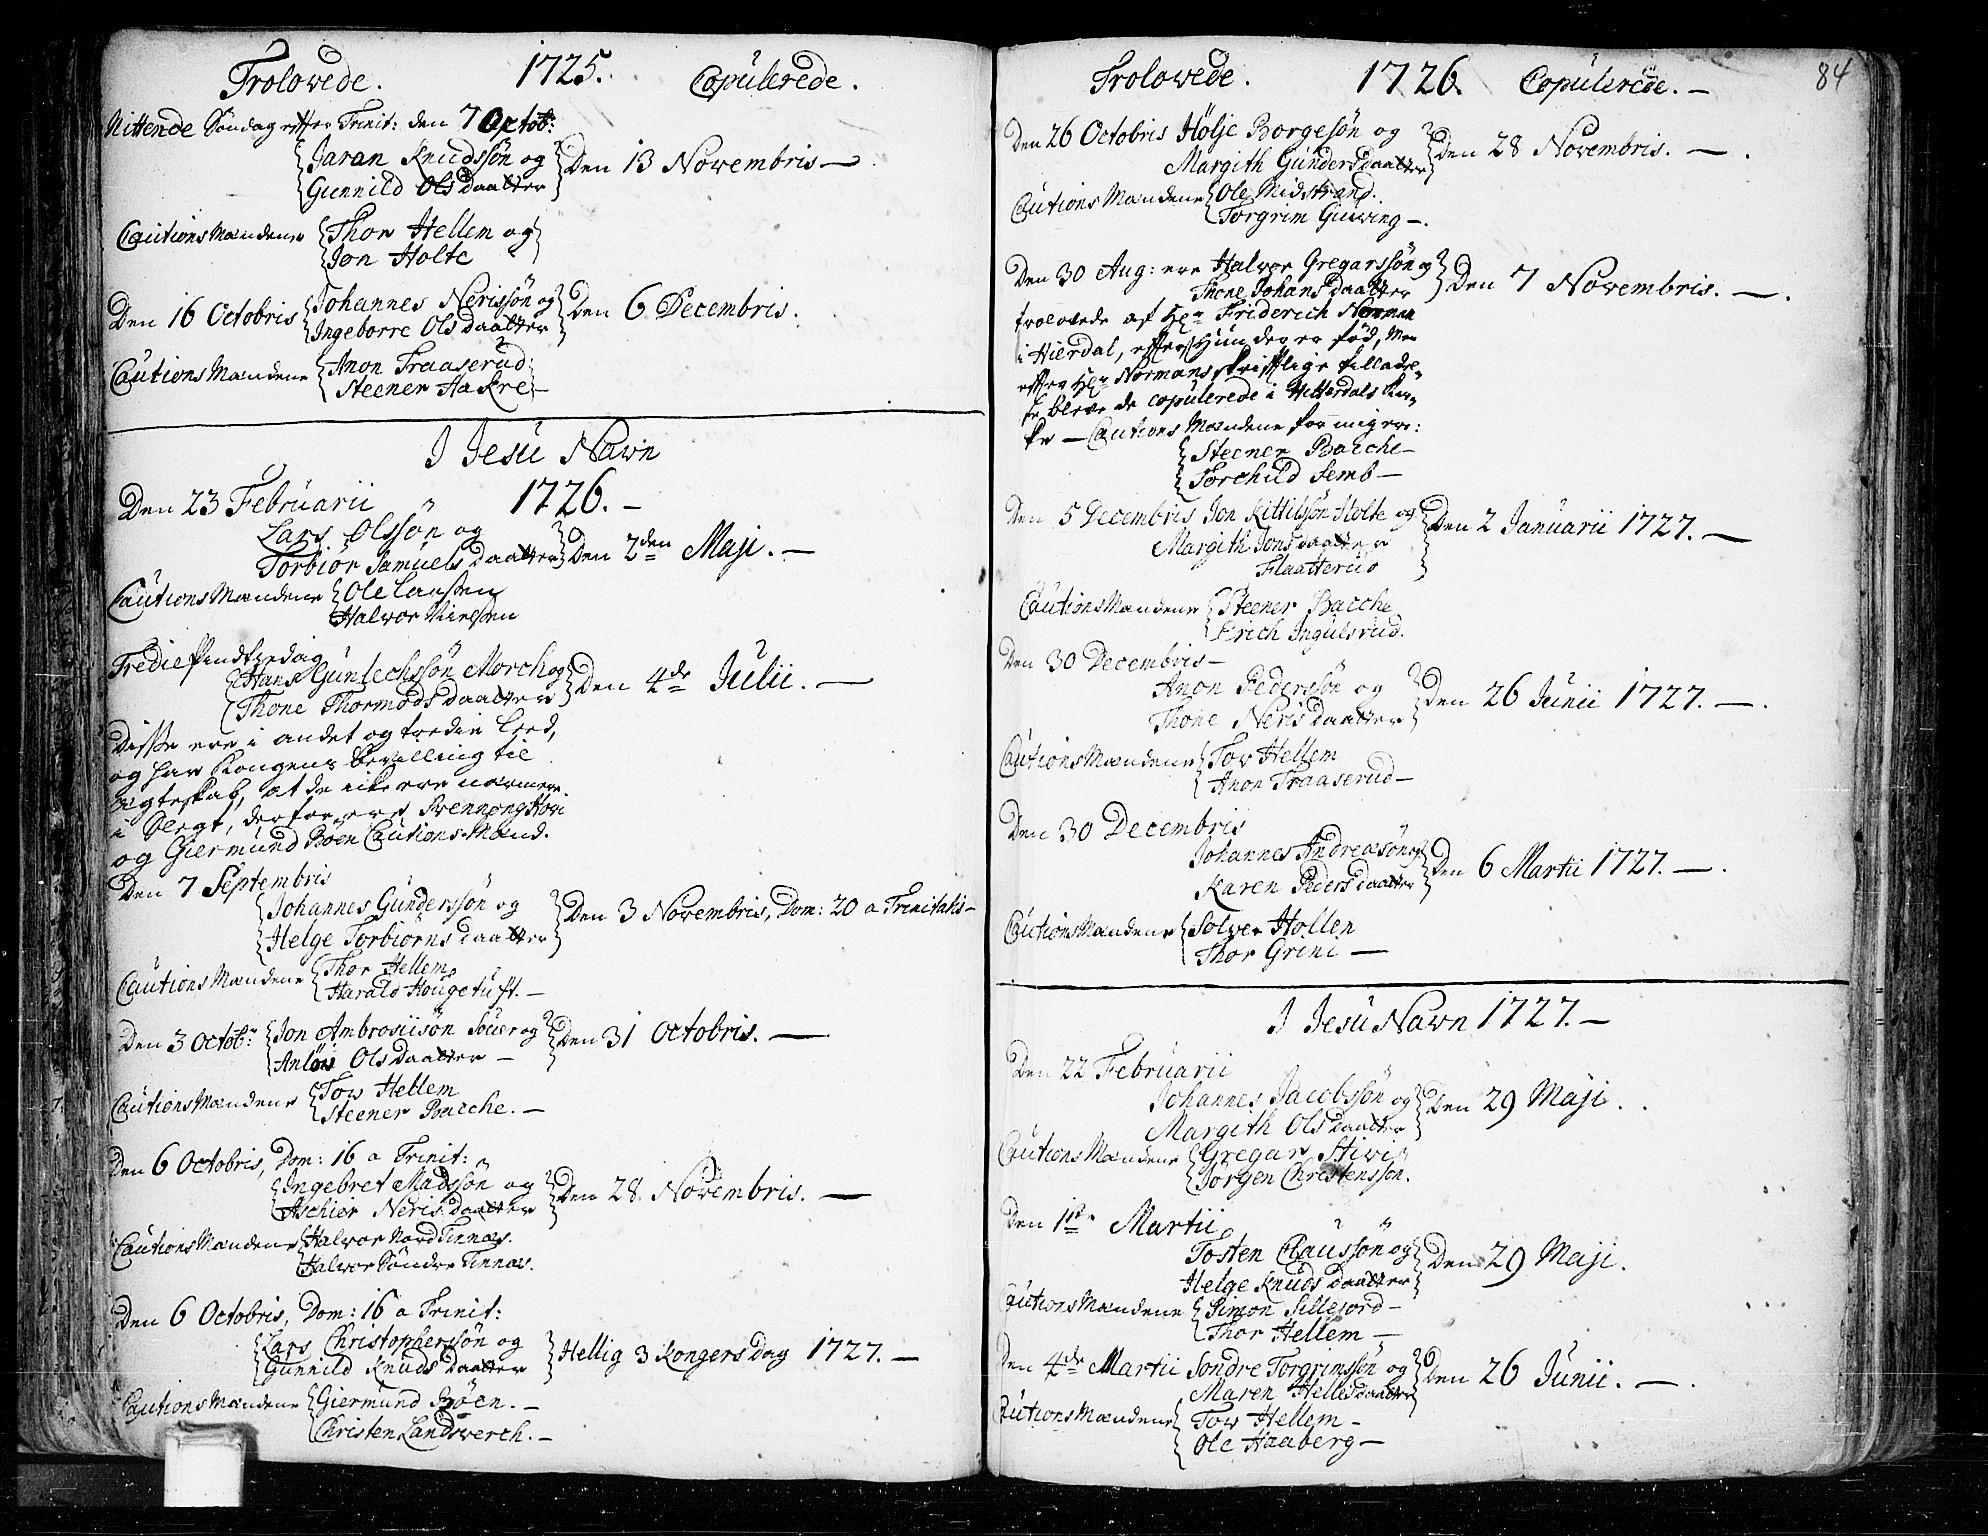 Trolovede. 1725. Copulerede.
Nittende Søndag efter Trinit: den 7 Octob:
Jaran Knudssøn og
Gunnild Olsdaatter
Den 13 Novembris —
Cautions Mændene Thov Hellem og
Jon Holte
Den 16 Octobris Johannes Nerissøn og
Ingeborre Olsdaatter
Den 6 Decembris.
Cautions Mændene Anon Traaserud
Steener Aakre —
I Jesu Navn
Den 23 Februarii 1726. —
Lars Olssøn og
Torbiør Samuelsdaatter Den 2den Maji. —
Cautions Mændene Ole Larssen
Halvor Nielssen
Tredie Pindtzedag
Hans Guntechssøn Morch og
Thone Thormodsdaatter
Den 4de Julii. —
Disse ere i andet og tredie Leed,
og har Kongens bevilling til
Ægteskab, at de icke ere nærmere
i Slegt, derfor ere Svennong Hovi
og Giermund Boen Cautions-Mænd.
Den 7 Septembris
Johannes Gunderssøn og
Helge Torbiørnsdaatter
Den 3 Novembris, Dom: 20 a Trinitatis —
Cautions Mændene Thor Hellem
Harald Hougetuft. —
Den 3 Octobr: Jon Ambrosiisøn Souer og
Anløv Olsdaatter —
Den 31 Octobris. —
Cautions Mændene Tov Hellem
Steener Bacche. —
Den 6 Octobris, Dom: 16 a Trinit:
Ingebret Madssøn og
Aschier Nerisdaatter
Den 28 Novembris. —
Cautions Mændene Halvor Nord Tinnæs.
Halvor Søndre Tinnæs.
Den 6 Octobris, Dom: 16 a Trinit:
Lars Christopherssøn og
Gunnild Knudsdaatter
Hellig 3 Kongers Dag 1727. —
Cautions Mændene Giermund Bøen. —
Christen Landsverch. —
Trolovede. 1726. Copulerede. — 84
Den 26 Octobris Hølje Borgesøn og
Margith Gundersdaatter
Den 28 Novembris. —
Cautions Mændene Ole Midstrand.
Torgrim Guwing —.
Den 30 Aug: ere Halvor Gregarssøn og
Thone Johansdaatter
Den 7 Novembris. —
trolovede af Hr Friderich Norman
i Hierdal, efter Hun der er fød, Men
efter Hr Normans skrifftlige tillade-
se bleve de copulerede i Hitterdals Kir-
ke — Cautions Mændene for mig ere:
Steener Bacche —
Torchild Semb —
Den 5 Decembris Jon Kittilssøn Holte og
Margith Jonsdaatter
Flaatterud
Den 2 Januarii 1727. —
Cautions Mændene Steener Bacche
Erich Ingulsrud.
Den 30 Decembris —
Anon Pederssøn og
Thone Nerisdaatter
Den 26 Junii 1727. —
Cautions Mændene Tov Hellem
Anon Traaserud —
Den 30 Decembris
Johannes Andreasøn og
Karen Pedersdaatter
Den 6 Martii 1727. —
Cautions Mændene Solver Hollen
Thor Grini —
I Jesu Navn 1727. —
Den 22 Februarii
Johannes Jacobssøn og
Margith Olsdaatter
Den 29 Maji.
Cautions Mændene Gregar Stivi
Jørgen Christenssøn.
Den 11te Martii
Tosten Claussøn og
Helge Knudsdaatter
Den 29 Maji.
Cautions Mændene Simon Sillejord —
Thor Hellem —
Den 4de Martii Søndre Torgrimssøn og
Maren Hellesdaatter
Den 26 Junii. —
Cautions Mændene Tov Hellem —
Ole Haaberg —